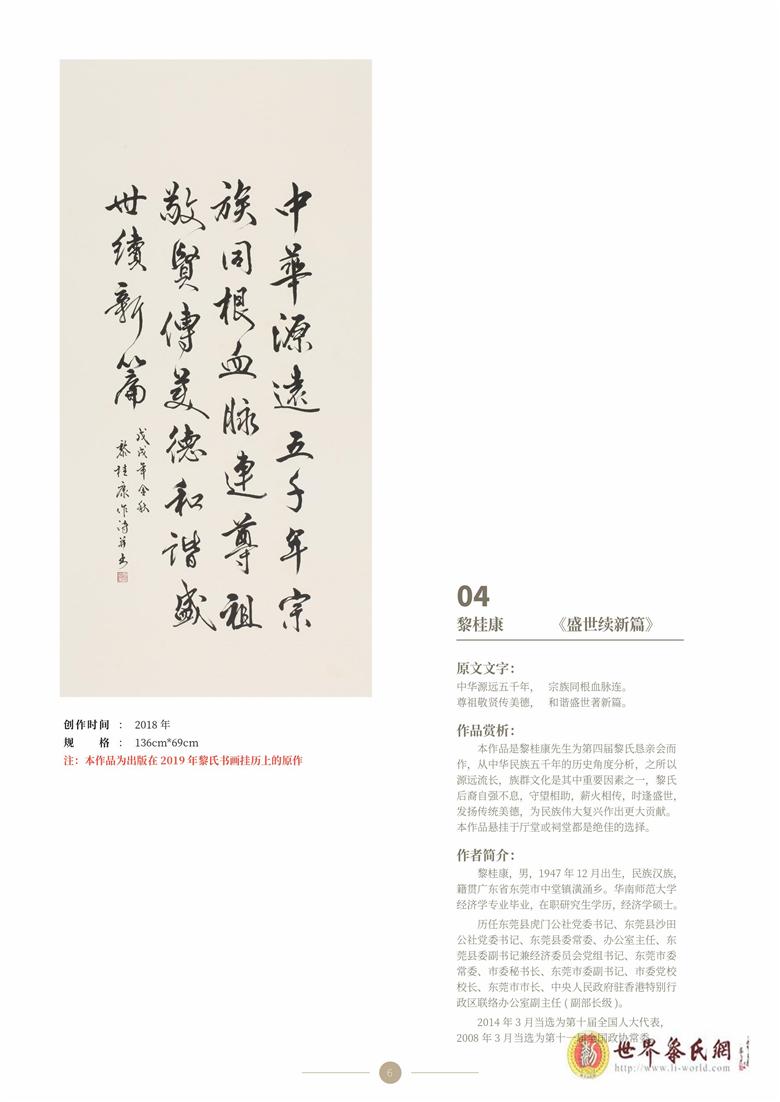 中華源遠五千年宗
族同根血脉連尊祖
敬賢傳美德和諧盛
世續新篇
戊戌年金秋
黎桂康作诗并书
创作时间 ： 2018 年
规　　格 ： 136cm*69cm
注：本作品为出版在 2019 年黎氏书画挂历上的原作
04
黎桂康　《盛世续新篇》
原文文字：
中华源远五千年，　宗族同根血脉连。
尊祖敬贤传美德，　和谐盛世著新篇。
作品赏析：
本作品是黎桂康先生为第四届黎氏恳亲会而
作，从中华民族五千年的历史角度分析，之所以
源远流长，族群文化是其中重要因素之一，黎氏
后裔自强不息，守望相助，薪火相传，时逢盛世，
发扬传统美德，为民族伟大复兴作出更大贡献。
本作品悬挂于厅堂或祠堂都是绝佳的选择。
作者简介：
黎桂康，男，1947 年 12 月出生，民族汉族，
籍贯广东省东莞市中堂镇潢涌乡。华南师范大学
经济学专业毕业，在职研究生学历，经济学硕士。
历任东莞县虎门公社党委书记、东莞县沙田
公社党委书记、东莞县委常委、办公室主任、东
莞县委副书记兼经济委员会党组书记、东莞市委
常委、市委秘书长、东莞市委副书记、市委党校
校长、东莞市市长、中央人民政府驻香港特别行
政区联络办公室副主任 ( 副部长级 )。
2014 年 3 月当选为第十届全国人大代表，
2008 年 3 月当选为第十一届全国政协常委。
世界黎氏網
http://www.li-world.com
6